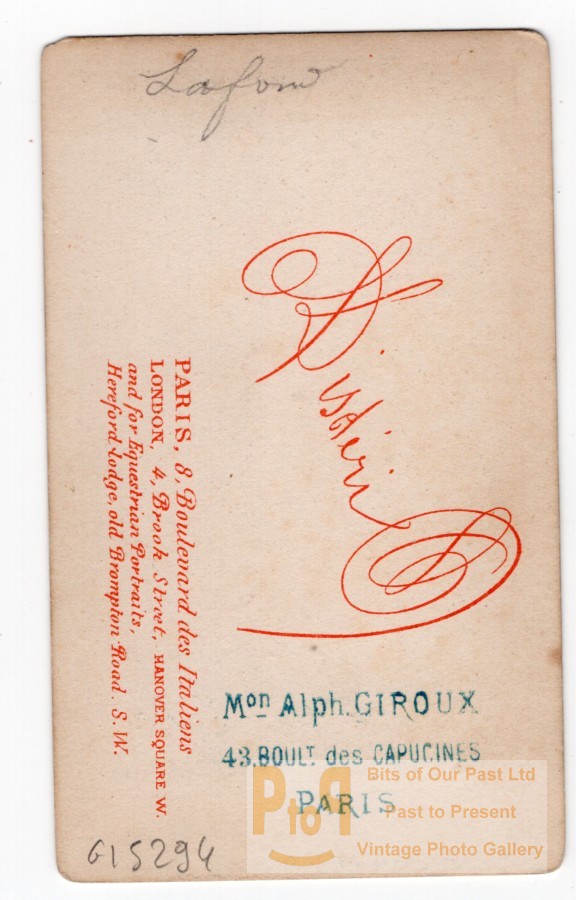 Disdéri
PARIS, 8, Boulevard des Italiens
LONDON, 4, Brook Street, HANOVER SQUARE W.
and for Equestrian Portraits,
Hereford Lodge, old Brompton Road. S.W.
Mon Alph. GIROUX
43. BOULT. des CAPUCINES
PARIS
G15294
PtoP
Bits of Our Past Ltd
Past to Present
Vintage Photo Gallery